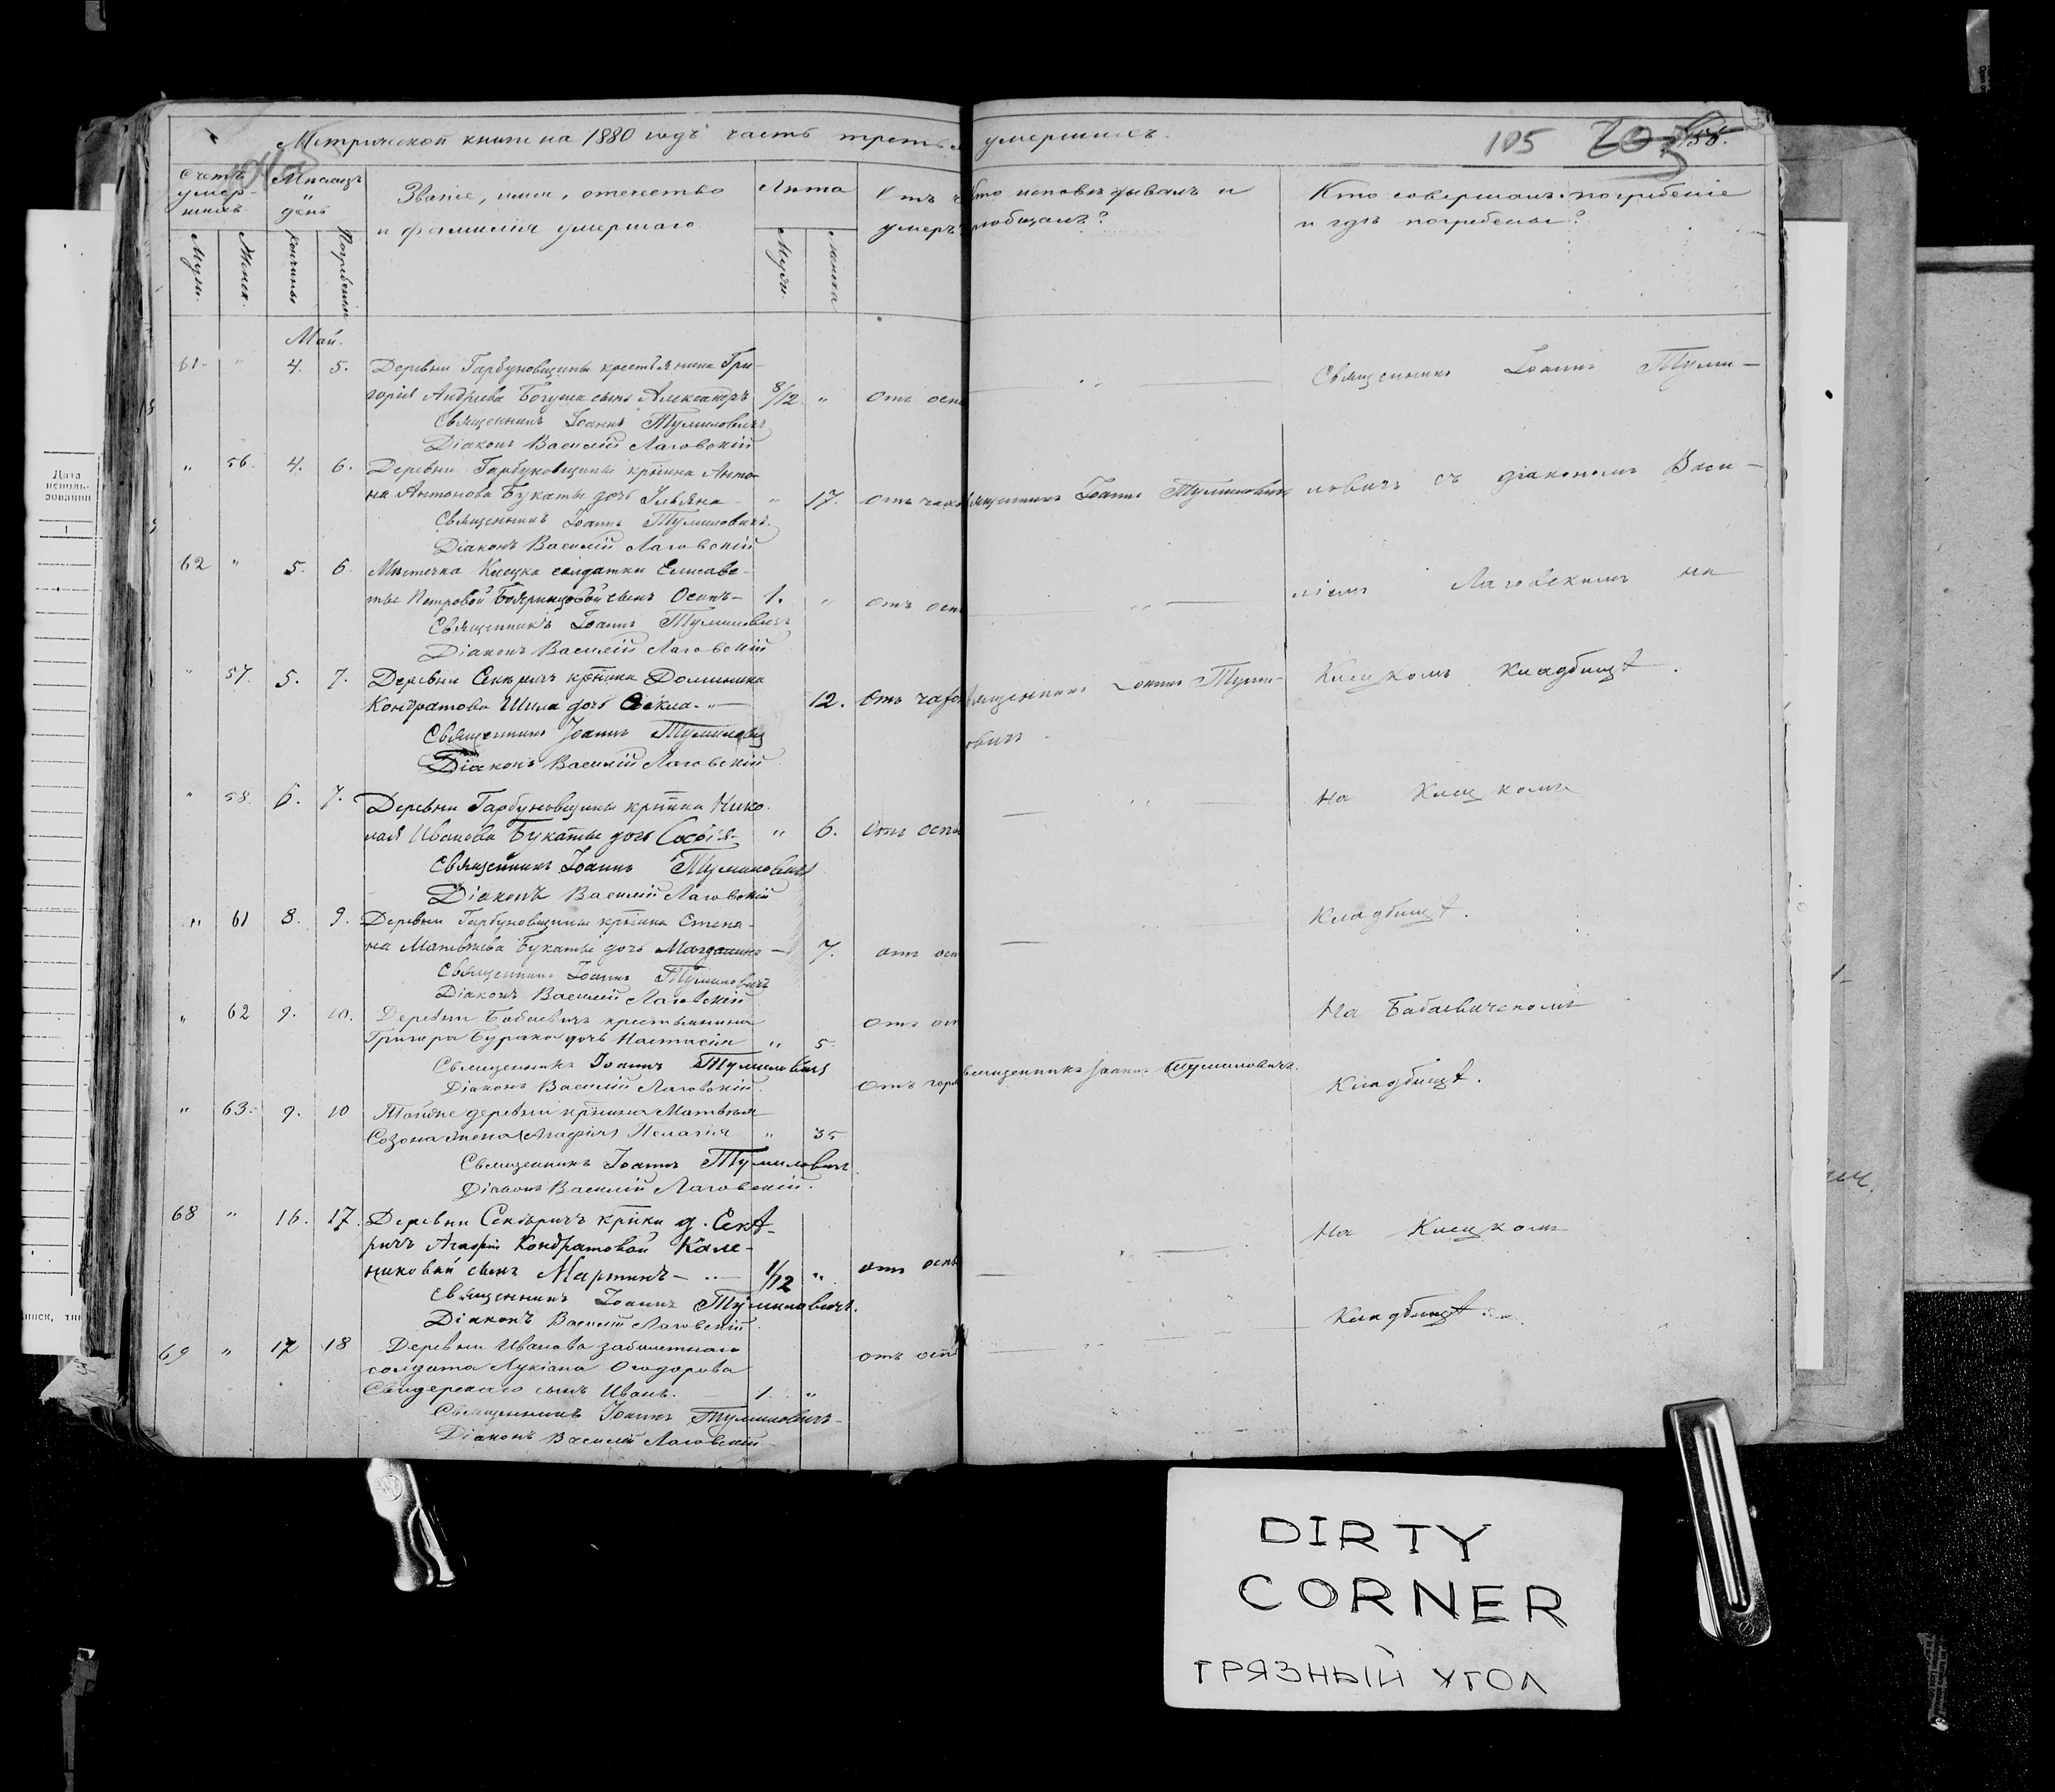 Метрической книги на 1880 годъ часть третья умершихъ.
105
Счетъ умершихъ.
Мѣсяцъ и день
Званіе, имя, отчество и фамилія умершаго
Лѣта
Отъ чего умеръ
Кто исповѣдывалъ и пріобщалъ?
Кто совершалъ погребеніе и гдѣ погребены?
Мужи.
Женск.
Кончины
Погребенія
Мужи.
Женска
Май.
61. " 4. 5. Деревни Гарбуновщины крестьянина Гри-
горія Андреева Богуша сынъ Александръ 8/12 " отъ оспы
Священникъ Іоаннъ Тумиловичъ
Діаконъ Василій Лаговскій
" 56. 4. 6. Деревни Гарбуновщины кр-нина Анто-
на Антонова Букаты дочь Ульяна " 17. отъ чахо
Священникъ Іоаннъ Тумиловичъ
Діаконъ Василій Лаговскій
62 " 5. 6. Мѣстечка Клецка солдатки Елисаве-
ты Петровой сынъ Осипъ 1. " отъ осп
Священникъ Іоаннъ Тумиловичъ
Діаконъ Василій Лаговскій
" 57. 5. 7. Деревни Секѣричъ кр-нина Доминика
Кондратова Шила дочь Ѳекла 12. отъ чахо
Священникъ Іоаннъ Тумиловичъ
Діаконъ Василій Лаговскій
" 58. 6. 7. Деревни Гарбуновщины кр-нина Нико-
лая Иванова Букаты дочь Софія " 6. отъ оспы
Священникъ Іоаннъ Тумиловичъ
Діаконъ Василій Лаговскій
" 61 8. 9. Деревни Гарбуновщины кр-нина Степа-
на Матвѣева Букаты дочь Магдалина 7. отъ осп
Священникъ Іоаннъ Тумиловичъ
Діаконъ Василій Лаговскій
" 62 9. 10. Деревни Бабаевичъ крестьянина отъ осп
Григора Бурака дочь Настасія " 5
Священникъ Іоаннъ Тумиловичъ
Діаконъ Василій Лаговскій. отъ горя
" 63. 9. 10 Тойже деревни кр-нина Матвѣя
Созона жена Пелагія " 35
Священникъ Іоаннъ Тумиловичъ
Діаконъ Василій Лаговскій.
68 " 16. 17. Деревни Секѣричъ кр-нки д. Секѣ-
ричъ Агафіи Кондратовой Кале-
никовой сынъ Мартинъ 1/12 " отъ оспы
Священникъ Іоаннъ Тумиловичъ.
Діаконъ Василій Лаговскій
69 " 17 18 Деревни Иванова забилетнаго отъ осп
солдата Лукіана Ѳеодорова
Свидерскаго сынъ Иванъ. 1. "
Священникъ Іоаннъ Тумиловичъ
Діаконъ Василій Лаговскій
Священникъ Іоаннъ Тумиловичъ
Священникъ Іоаннъ Тумиловичъ
Священникъ Іоаннъ Тумиловичъ.
Священникъ Іоаннъ Туми-
ловичъ съ діакономъ Васи-
ліемъ Лаговскимъ на
Клецкомъ кладбищѣ.
На Клецкомъ
Кладбищѣ.
На Бабаевичскомъ
Кладбищѣ.
На Клецкомъ
Кладбищѣ.
Дата использования
1
DIRTY
CORNER
ГРЯЗНЫЙ УГОЛ